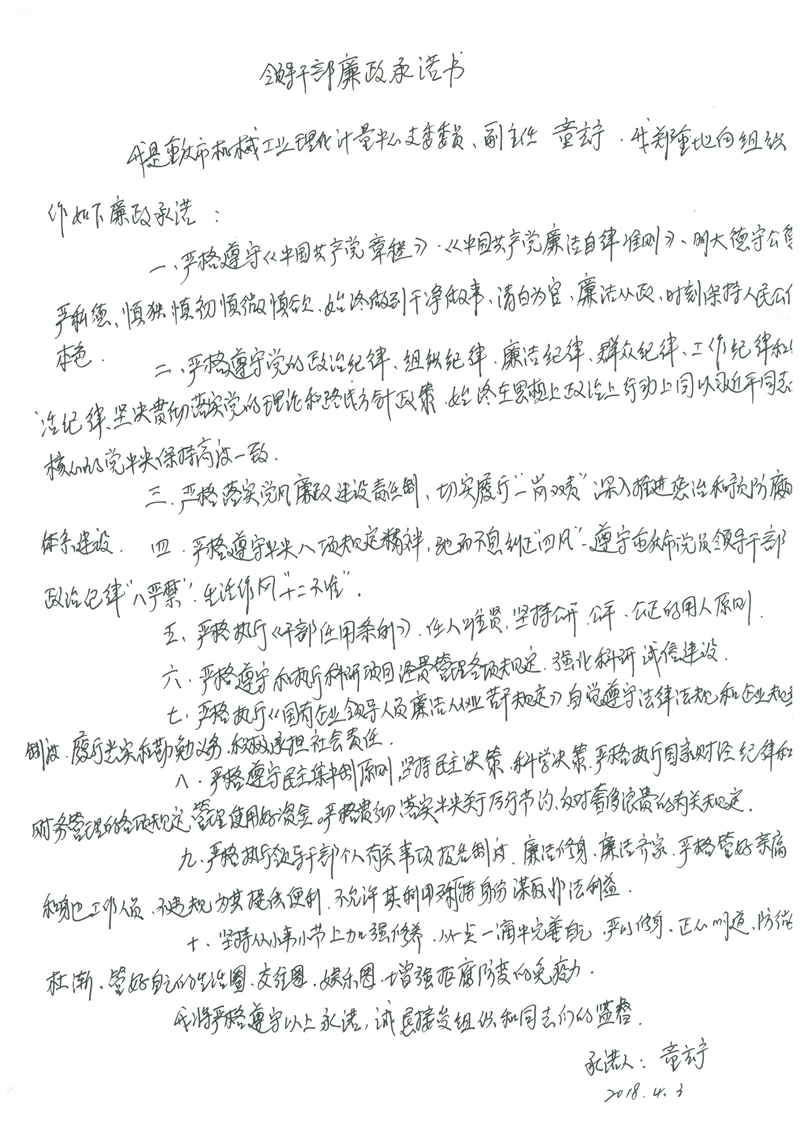 领导干部廉政承诺书
我是重庆市机械工业理化计量中心支委委员、副主任 童玄宁. 我郑重地向组织
作如下廉政承诺：
一、严格遵守《中国共产党章程》.《中国共产党廉洁自律准则》、明大德守公德
严私德、慎独慎初慎微慎欲、始终做到干净做事、清白为官、廉洁从政、时刻保持人民公仆
本色.
二、严格遵守党的政治纪律、组织纪律、廉洁纪律、群众纪律、工作纪律和生
活纪律、坚决贯彻落实党的理论和路线方针政策、始终在思想上政治上行动上同以习近平同志
核心的党中央保持高度一致.
三、严格落实党风廉政建设责任制、切实履行“一岗双责”深入推进惩治和预防腐败
体系建设.
四、严格遵守中央八项规定精神，驰而不息纠正“四风”、遵守重庆市党员领导干部
政治纪律“八严禁”.生活作风“十二不准”.
五、严格执行《干部任用条例》、任人唯贤，坚持公开、公平、公正的用人原则.
六、严格遵守和执行科研项目经费管理各项规定、强化科研诚信建设.
七、严格执行《国有企业领导人员廉洁从业若干规定》自觉遵守法律法规和企业规章
制度、履行忠实和勤勉义务、积极承担社会责任.
八、严格遵守民主集中制原则、坚持民主决策、科学决策、严格执行国家财经纪律和
财务管理的各项规定、管理使用好资金、严格贯彻落实中央关于厉行节约、反对奢侈浪费的有关规定.
九、严格执行领导干部个人有关事项报告制度、廉洁修身、廉洁齐家、严格管好亲属
和身边工作人员、不违规为其提供便利、不允许其利用特殊身份谋取非法利益.
十、坚持从小事小节上加强修养、从一点一滴中完善自己、严以修身、正心明道、防微
杜渐、管好自己的生活圈、交往圈、娱乐圈、增强拒腐防变的免疫力.
我将严格遵守以上承诺，诚恳接受组织和同志们的监督.
承诺人：童玄宁
2018.4.3